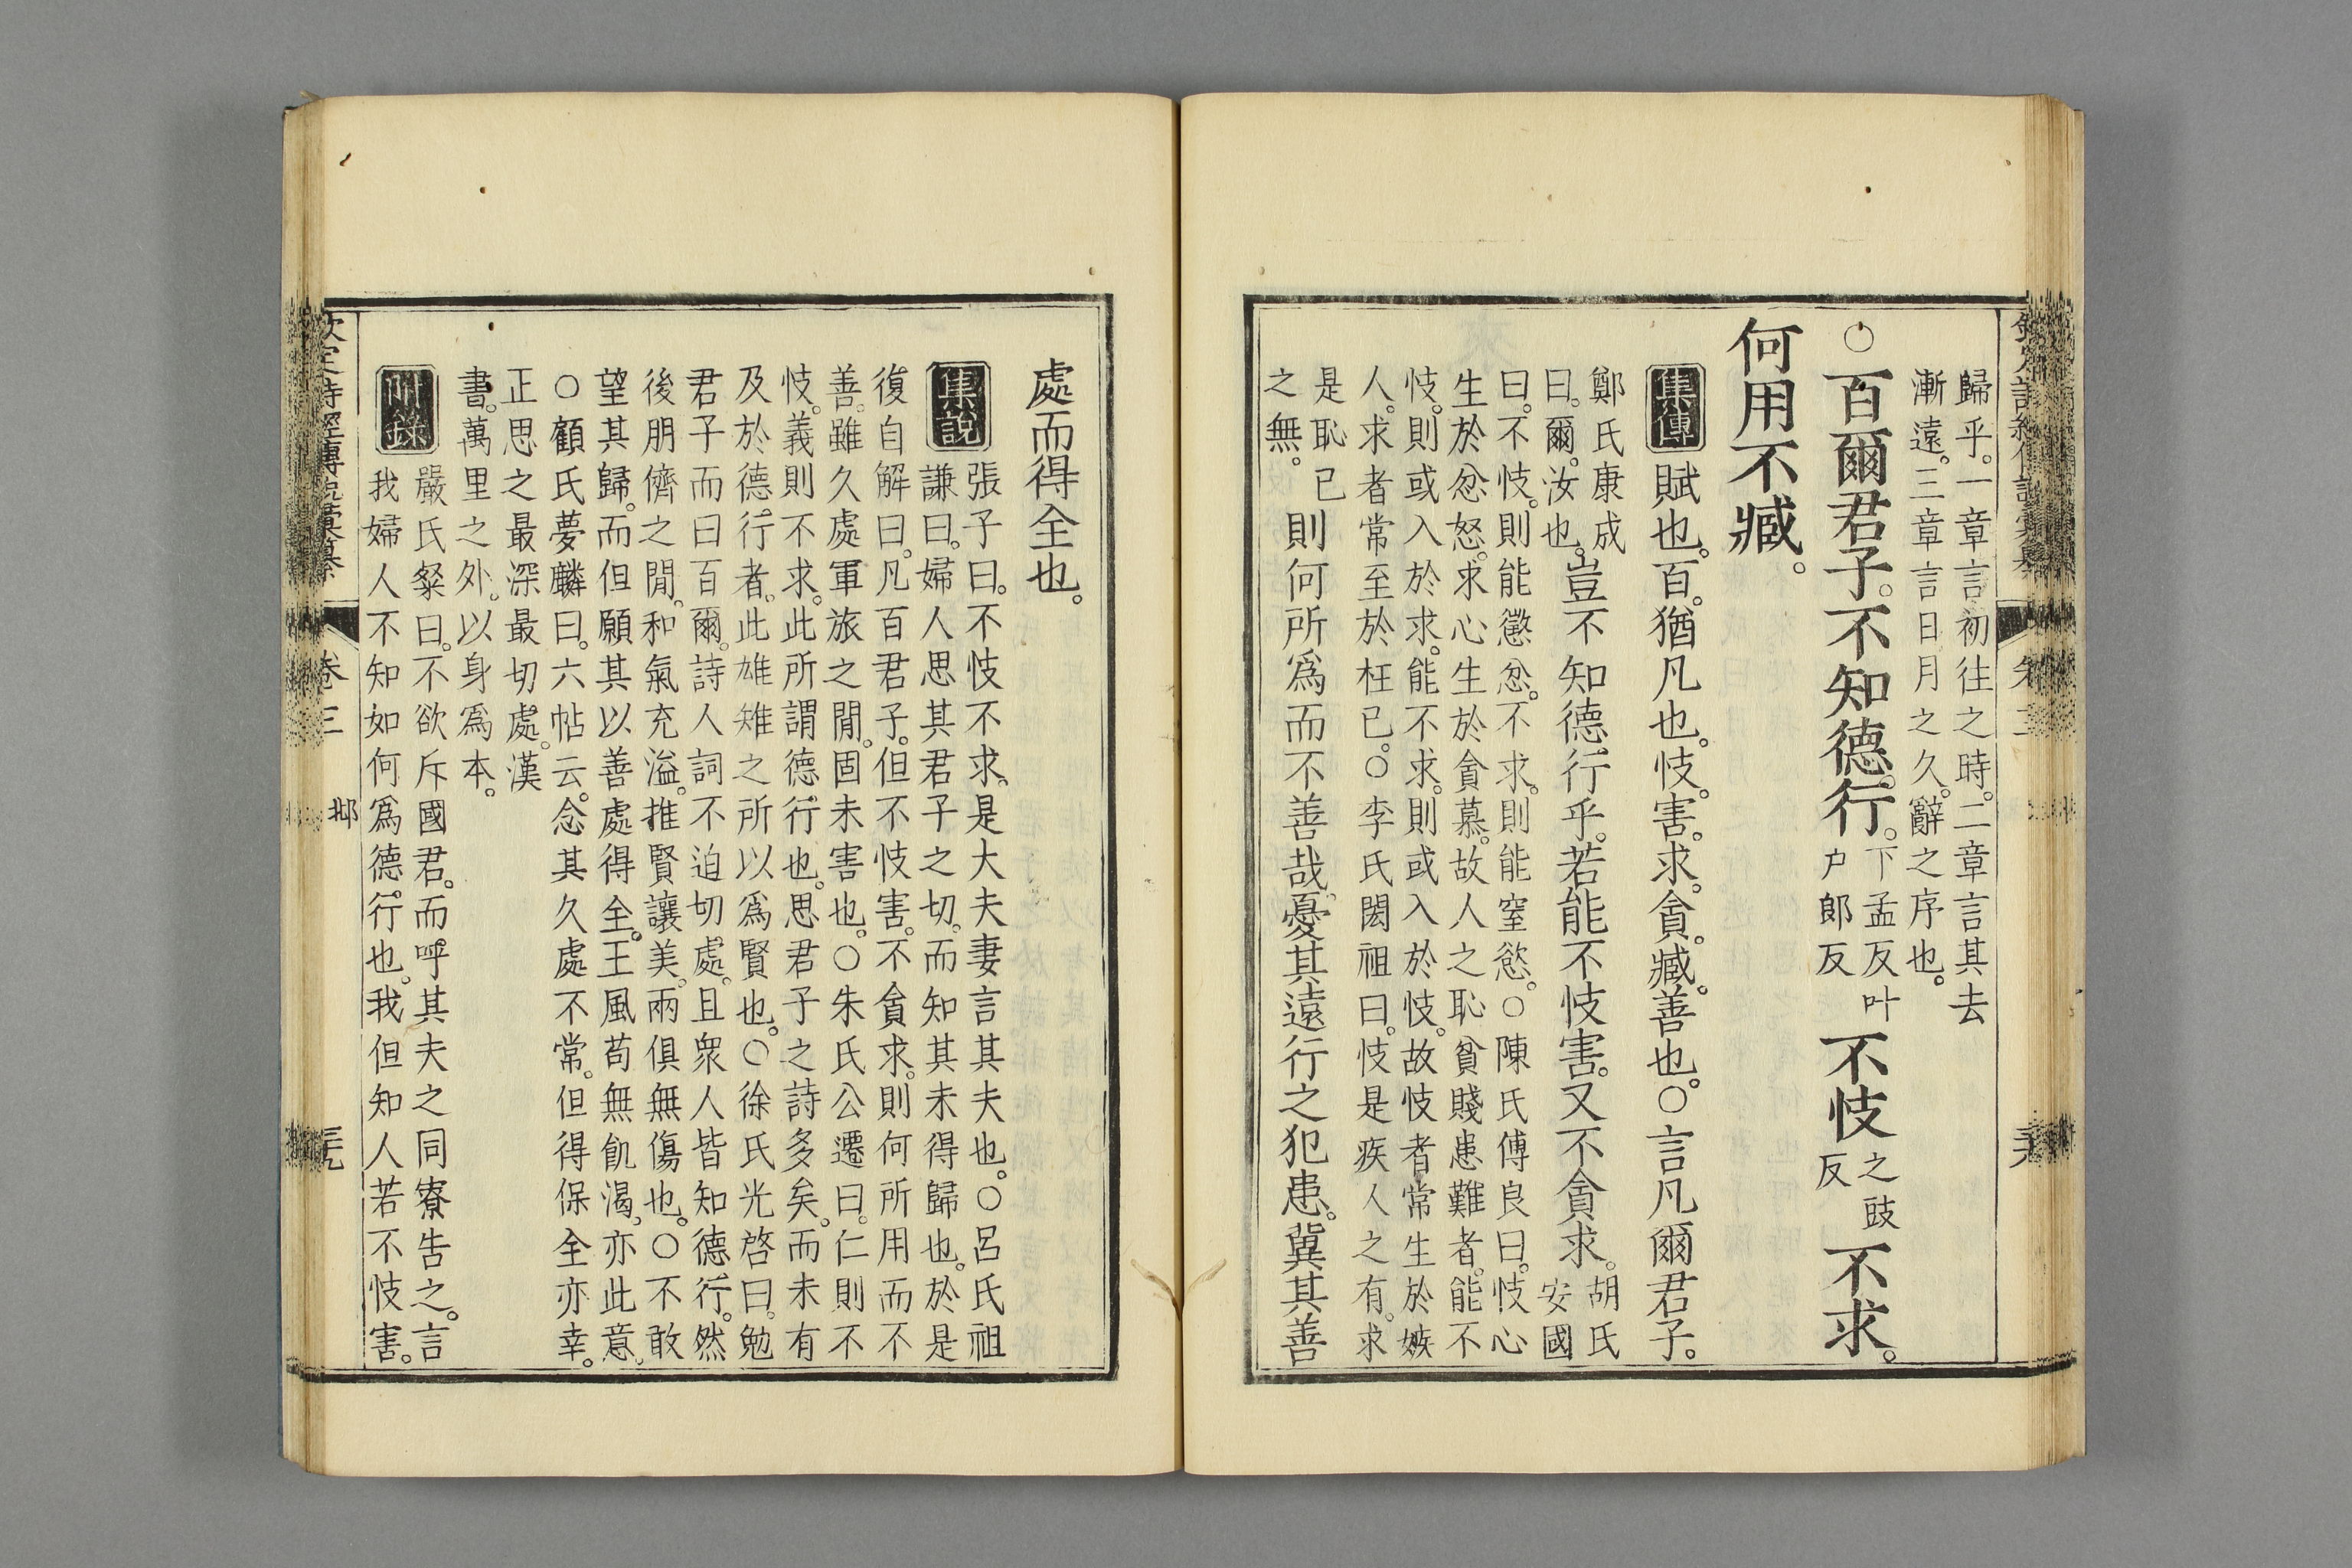 歸乎。一章言初往之時。二章言其去
漸遠。三章言日月之久。辭之序也。
○百爾君子。不知德行。下孟反叶戶郎反不忮之豉反不求。
何用不臧。
集傳 賦也。百。猶凡也。忮。害。求。貪。臧。善也。○言凡爾君子。
鄭氏康成曰。爾。汝也。豈不知德行乎。若能不忮害。又不貪求。胡氏安國
曰。不忮。則能懲忿。不求。則能窒慾。○陳氏傅良曰。忮心
生於忿怒。求心生於貪慕。故人之恥貧賤患難者。能不
忮。則或入於求。能不求。則或入於忮。故忮者常生於嫉
人。求者常至於枉已。○李氏閎祖曰。忮是疾人之有。求
是恥已之無。則何所爲而不善哉。憂其遠行之犯患。冀其善
處而得全也。
集說 張子曰。不忮不求。是大夫妻言其夫也。○呂氏祖
謙曰。婦人思其君子之切。而知其未得歸也。於是
復自解曰。凡百君子。但不忮害。不貪求。則何所用而不
善。雖久處軍旅之閒。固未害也。○朱氏公遷曰。仁則不
忮。義則不求。此所謂德行也。思君子之詩多矣。而未有
及於德行者。此雄雉之所以爲賢也。○徐氏光啓曰。勉
君子而曰百爾。詩人詞不迫切處。且衆人皆知德行。然
後朋儕之閒。和氣充溢。推賢讓美。兩俱無傷也。○不敢
望其歸。而但願其以善處得全。王風苟無飢渴。亦此意。
○顧氏夢麟曰。六帖云。念其久處不常。但得保全亦幸。
正思之最深最切處。漢
書。萬里之外。以身爲本。
附錄 嚴氏粲曰。不欲斥國君。而呼其夫之同寮告之。言
我婦人不知如何爲德行也。我但知人若不忮害。
欽定詩經傳說彙纂 卷三 邶